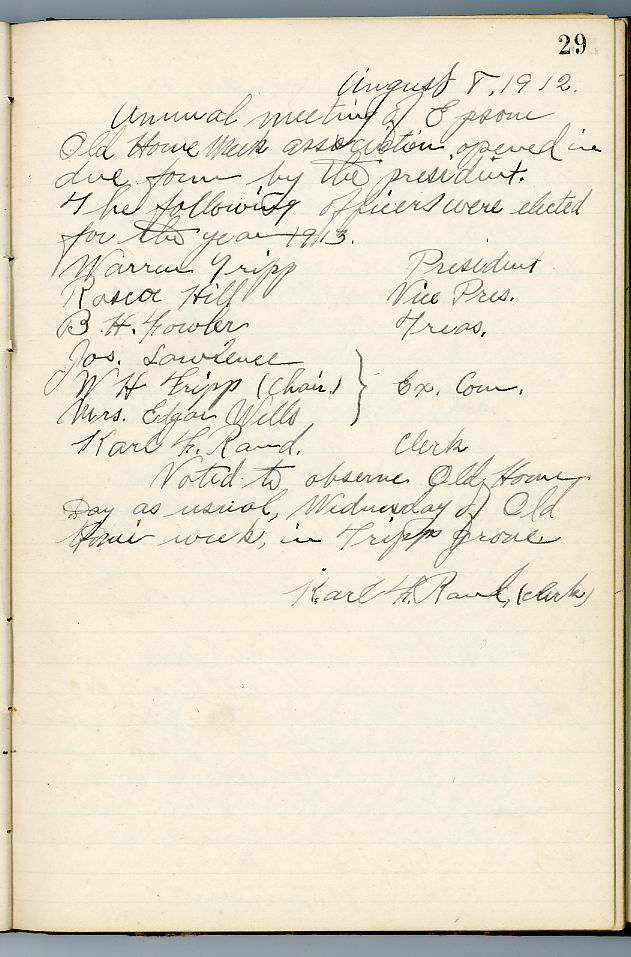 29
August 8, 1912.
Annual meeting of Epsom
Old Home Week association opened in
due form by the president.
The following officers were elected
for the year 1913.
Warren Tripp President
Roscoe Hill Vice Pres.
B. H. Fowler Treas.
Jos. Lawrence
W H Tripp (Chair.) } Ex. Com.
Mrs. Edgar Wells
Karl F. Rand. Clerk
Voted to observe Old Home
Day as usual, Wednesday of Old
Home week, in Tripp grove
Karl F. Rand, (clerk)